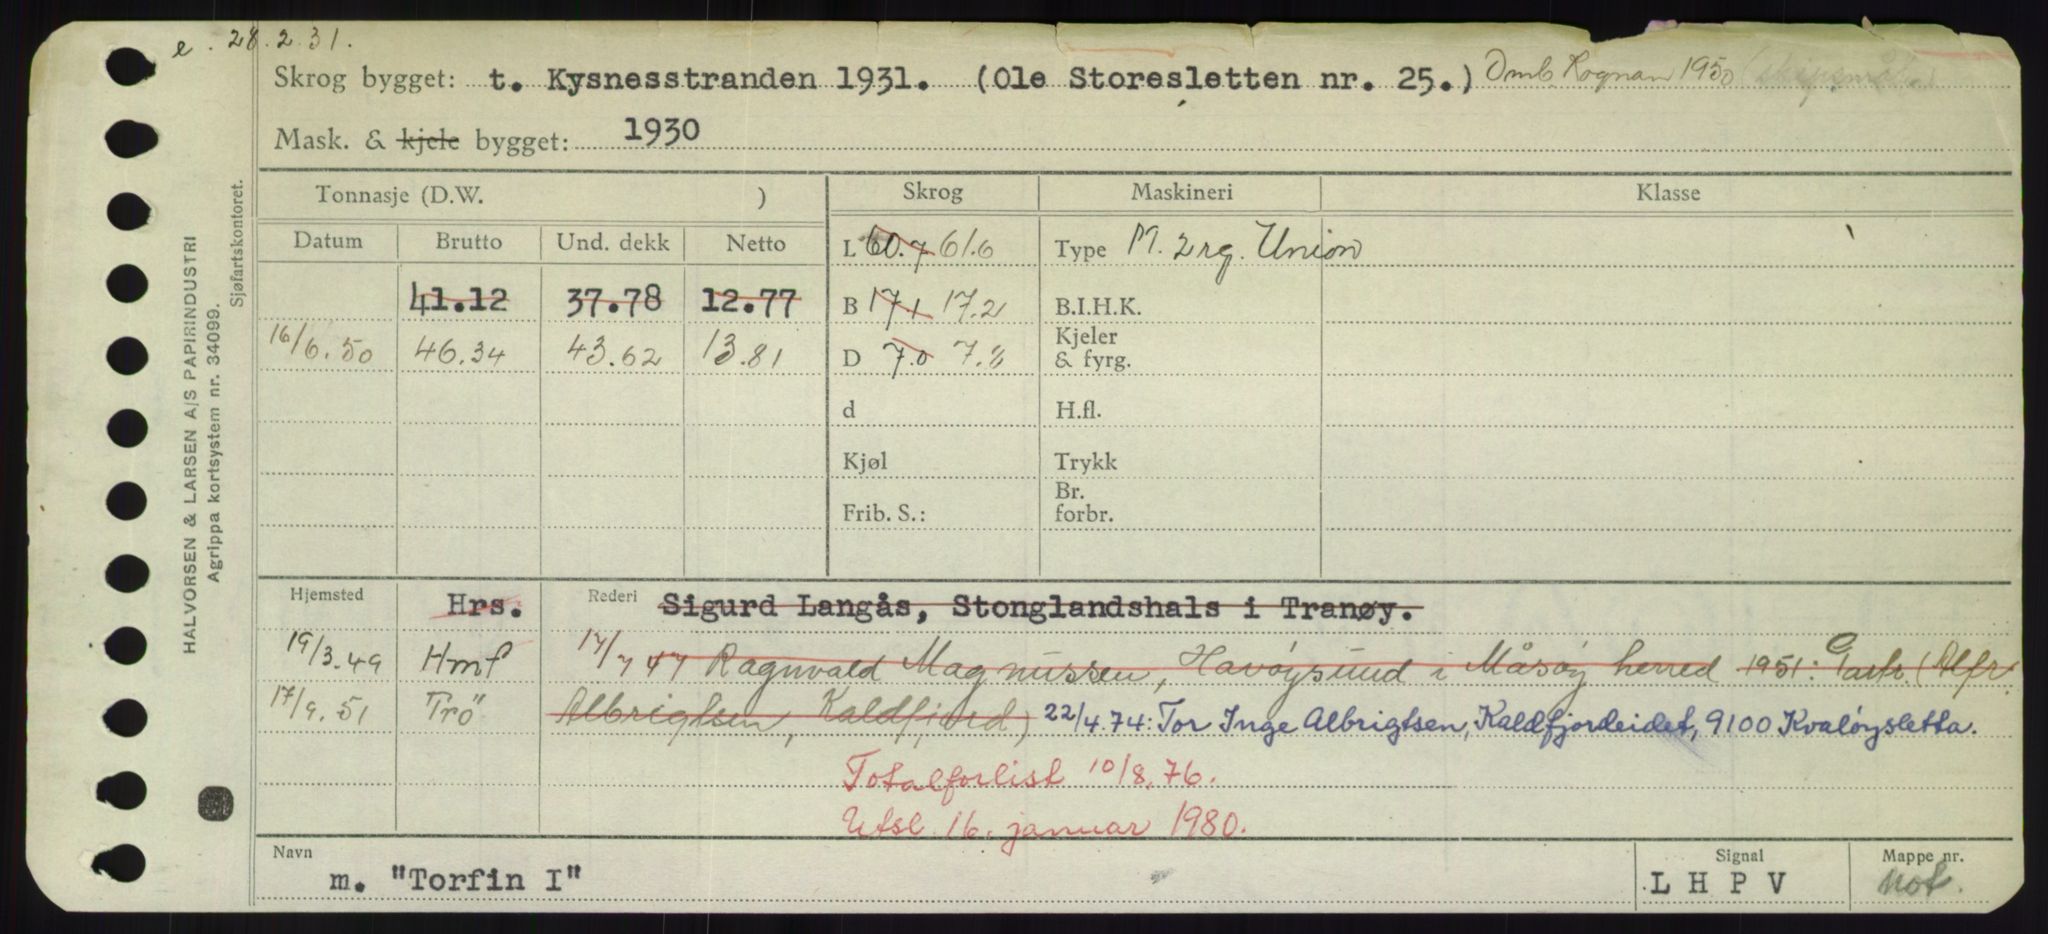 e. 28.2.31.
Skrog bygget: t. Kysnesstranden 1931. (Ole Storesletten nr. 25.) Omb. Rognan 1950
Mask. & kjele bygget: 1930
Tonnasje (D.W. ) Skrog Maskineri Klasse
Datum Brutto Und. dekk Netto L 60.7 61.6 Type M. 2 rg. Union
41.12 37.78 12.77 B 17.1 17.2 B.I.H.K.
16/6.50 46.34 43.62 13.81 D 7.0 7.8 Kjeler & fyrg.
d H.fl.
Kjøl Trykk
Frib. S.: Br. forbr.
Hjemsted Hrs. Rederi Sigurd Langås, Stonglandshals i Tranøy.
19/3.49 Hmf 17/7 47 Ragnvald Magnussen, Havøysund i Måsøy herred 1951: Partr. (Alfr.
17/9.51 Trö Albrigtsen, Kaldfjord) 22/4.74: Tor Inge Albrigtsen, Kaldfjordeidet, 9100 Kvaløysletta.
Totalforlist 10/8.76.
Utsl. 16. januar 1980.
Navn m. "Torfin I" Signal L H P V Mappe nr. not.
HALVORSEN & LARSEN A/S PAPIRINDUSTRI
Agrippa kortsystem nr. 34099.
Sjøfartskontoret.